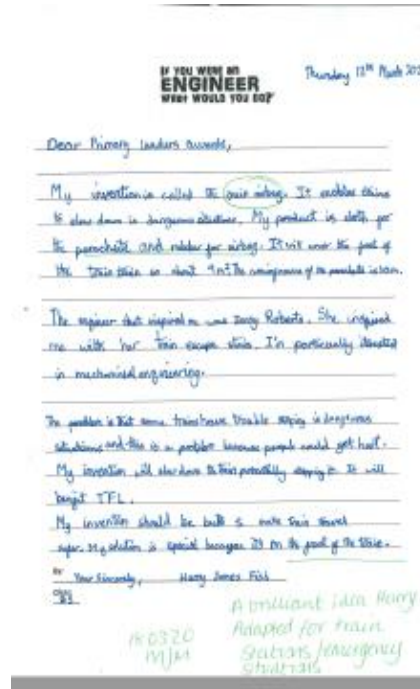 IF YOU WERE AN
ENGINEER
WHAT WOULD YOU DO?
Thursday 12th March
Dear Primary leaders awards,
My invention is called the train airbag. It enables trains
to slow down in dangerous situations. My product is cloth for
the parachute and rubber for airbag. It will cover the front of
the train in about
The engineer that inspired me was Roberts. She inspired
me with her train escape stairs. I'm particually
in mechanical engineering.
The problem is that some trains have trouble stopping in dangerous
situations and this is a problem because people could get hurt.
My invention will slow down the train potentially stopping it. It will
benifit TFL.
My invention should be built to make train travel
safer. My solution is special because It's on the front of the train.
Your Sincerely, Harry James Fish
A brilliant idea Harry
Adapted for train
stations/emergency
situations
180320
MJM